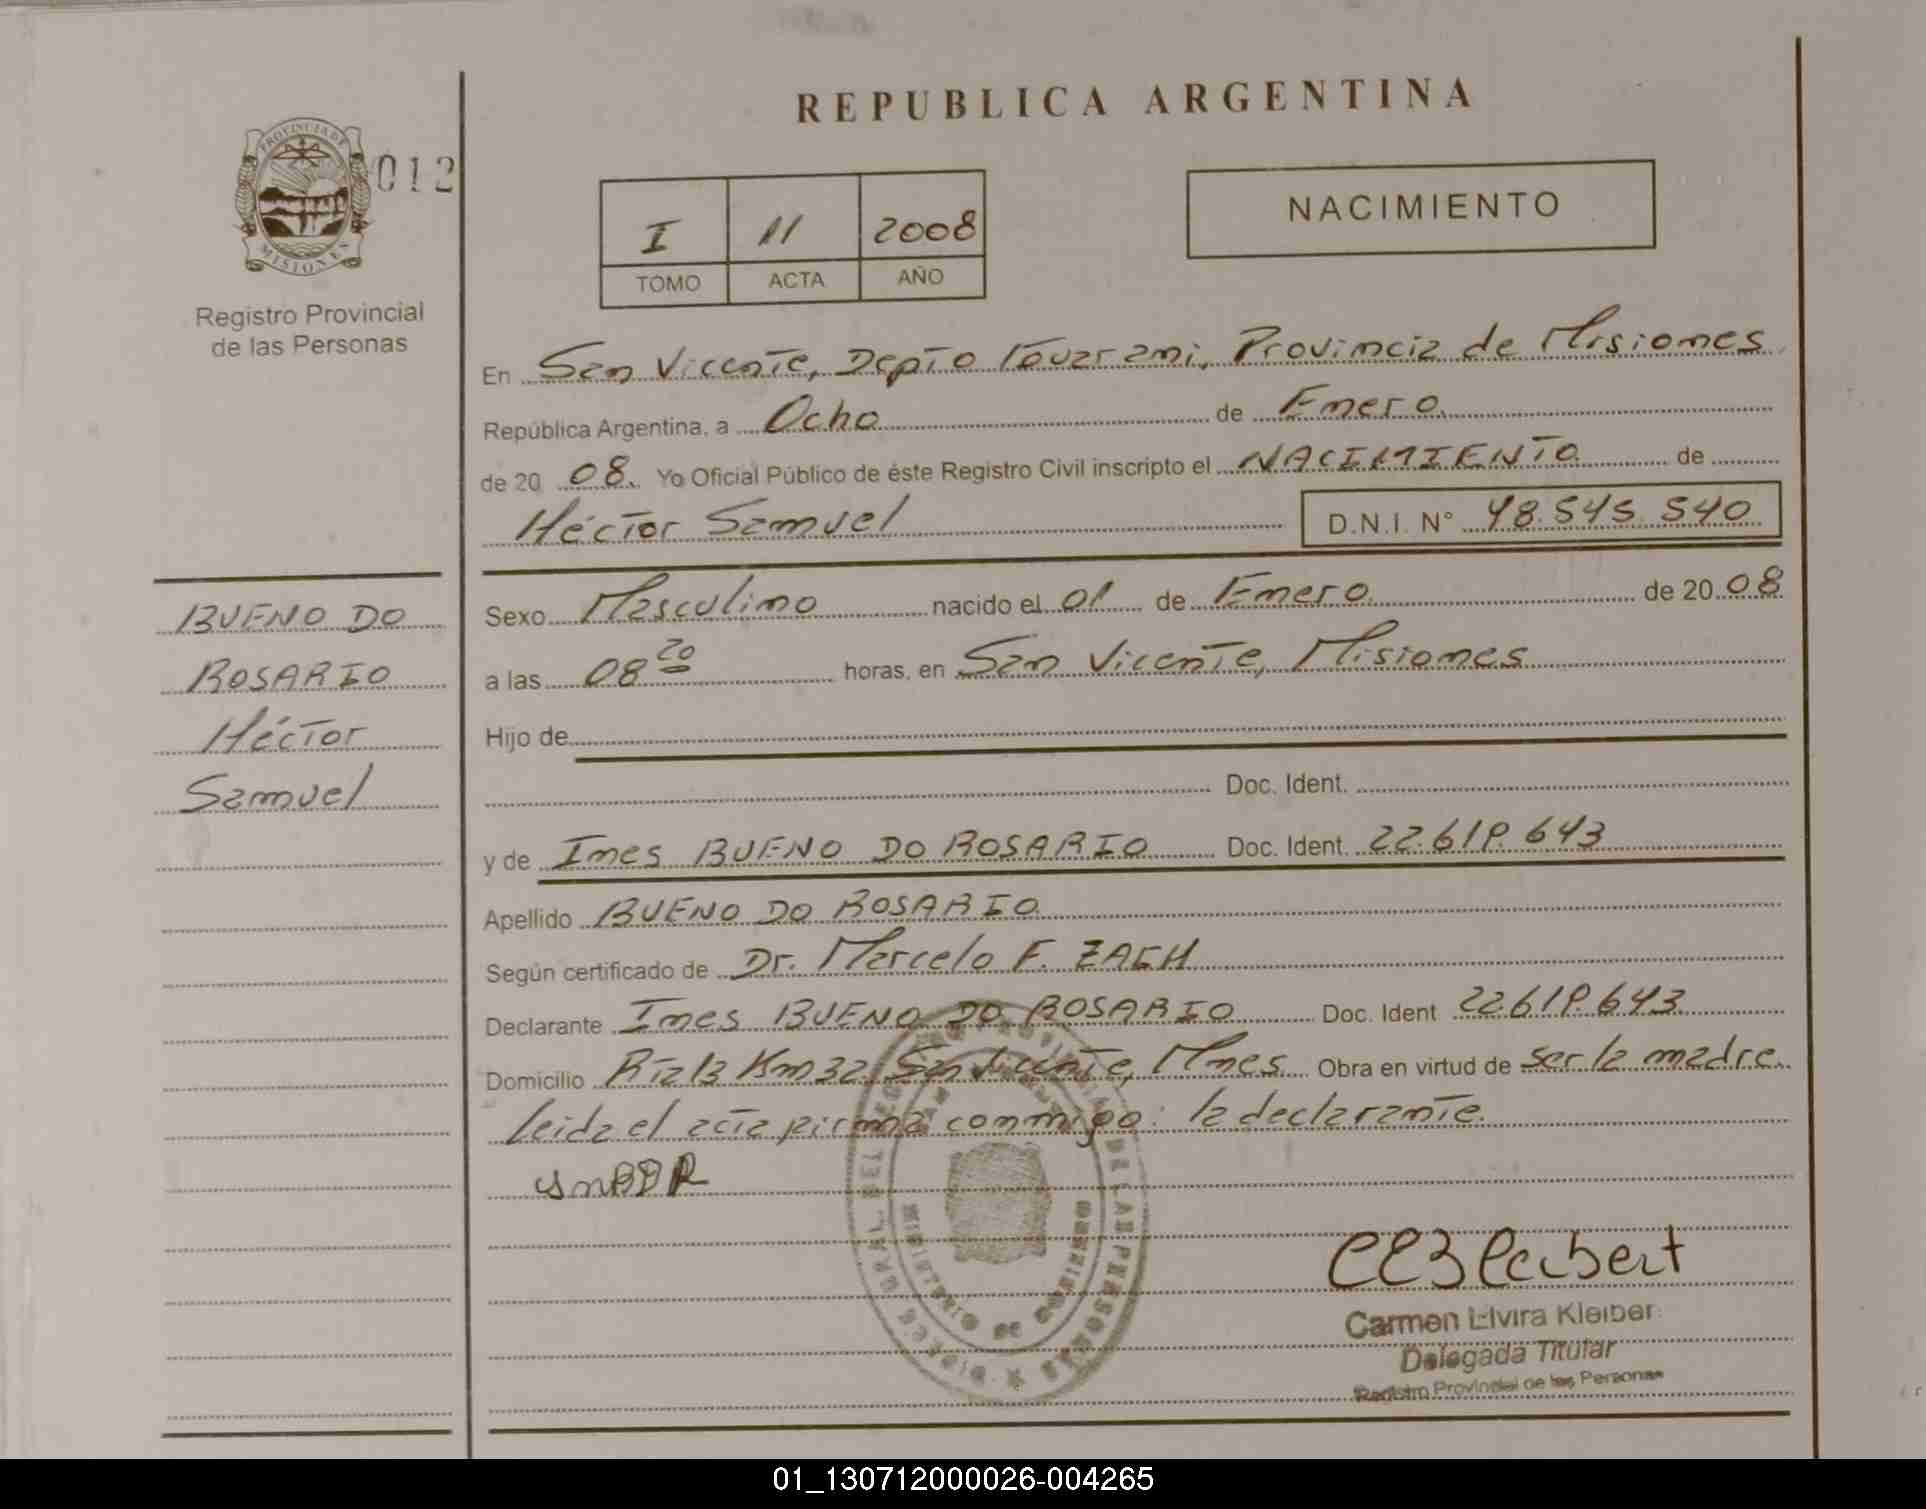 REPUBLICA ARGENTINA
PROVINCIA DE
MISIONES
012
Registro Provincial
de las Personas
I 11 2008
TOMO ACTA AÑO
NACIMIENTO
En San Vicente, Depto Guarani, Provincia de Misiones
República Argentina, a Ocho de Enero
de 20 08. Yo Oficial Público de éste Registro Civil inscripto el NACIMIENTO de
Héctor Samuel D.N.I. N° 48.545.540
BUENO DO
ROSARIO
Héctor
Samuel
Sexo Masculino nacido el 01 de Enero de 20 08
a las 08 20 horas, en San Vicente, Misiones
Hijo de
Doc. Ident.
y de Ines BUENO DO ROSARIO Doc. Ident. 22.619.643
Apellido BUENO DO ROSARIO
Según certificado de Dr. Marcelo F. ZACH
Declarante Ines BUENO DO ROSARIO Doc. Ident 22.619.643
Domicilio Rta 13 Km 32, San Vicente, Mnes. Obra en virtud de ser la madre.
Leida el acta firma conmigo: la declarante.
Carmen Elvira Kleiber
Delegada Titular
Registro Provincial de las Personas
01_130712000026-004265